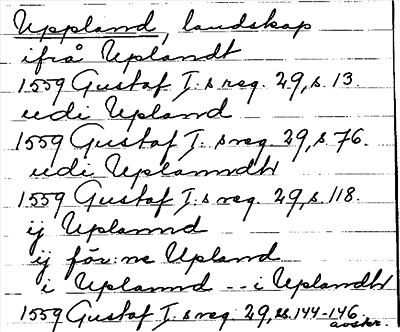 Uppland, landskap
ifrå Uplandt
1559 Gustaf I:s reg. 29, s. 13.
udi Upland
1559 Gustaf I:s reg. 29, s 76.
udi Uplanndh
1559 Gustaf I:s reg. 29, s. 118.
ij Uplannd
ij för:ne Upland
i Uplannd -- i Uplandh
1559 Gustaf I:s reg. 29, ss. 144-146.
avskr.